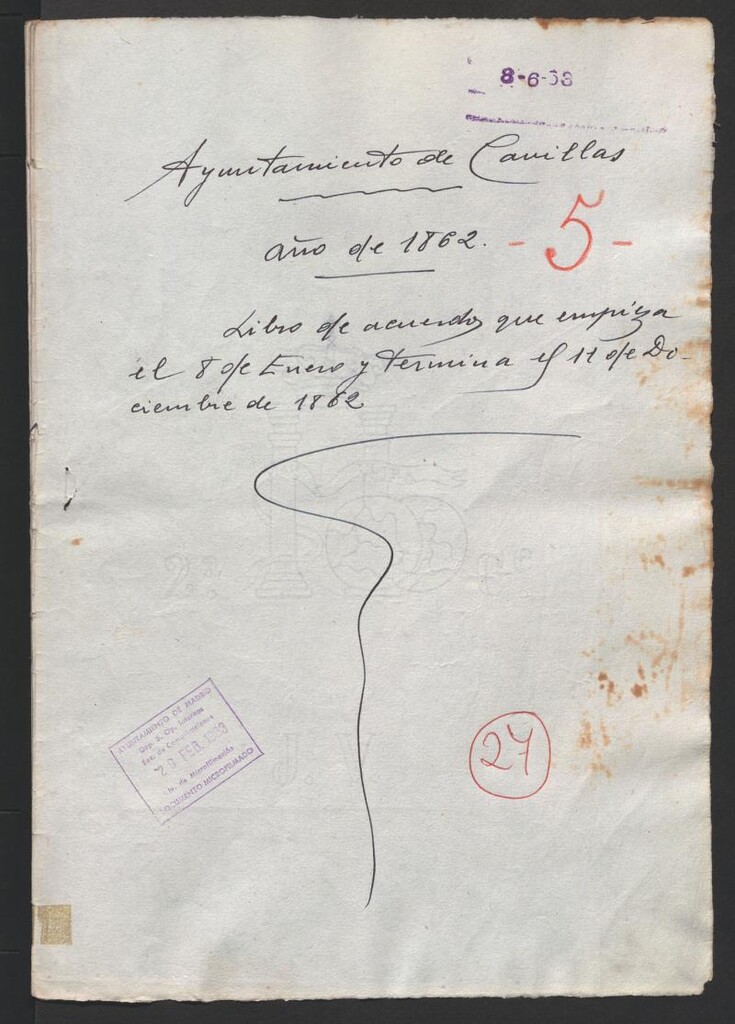 8-6-
Ayuntamiento de Canillas
año de 1862.
- 5 -
Libro de acuerdos que empieza
el 8 de Enero y termina el 11 de Di-
ciembre de 1862
AYUNTAMIENTO DE MADRID
Dep. S. Op. Internos
Sec. de
29 FEB.
de Microfilmación
DOCUMENTO MICROFILMADO
27